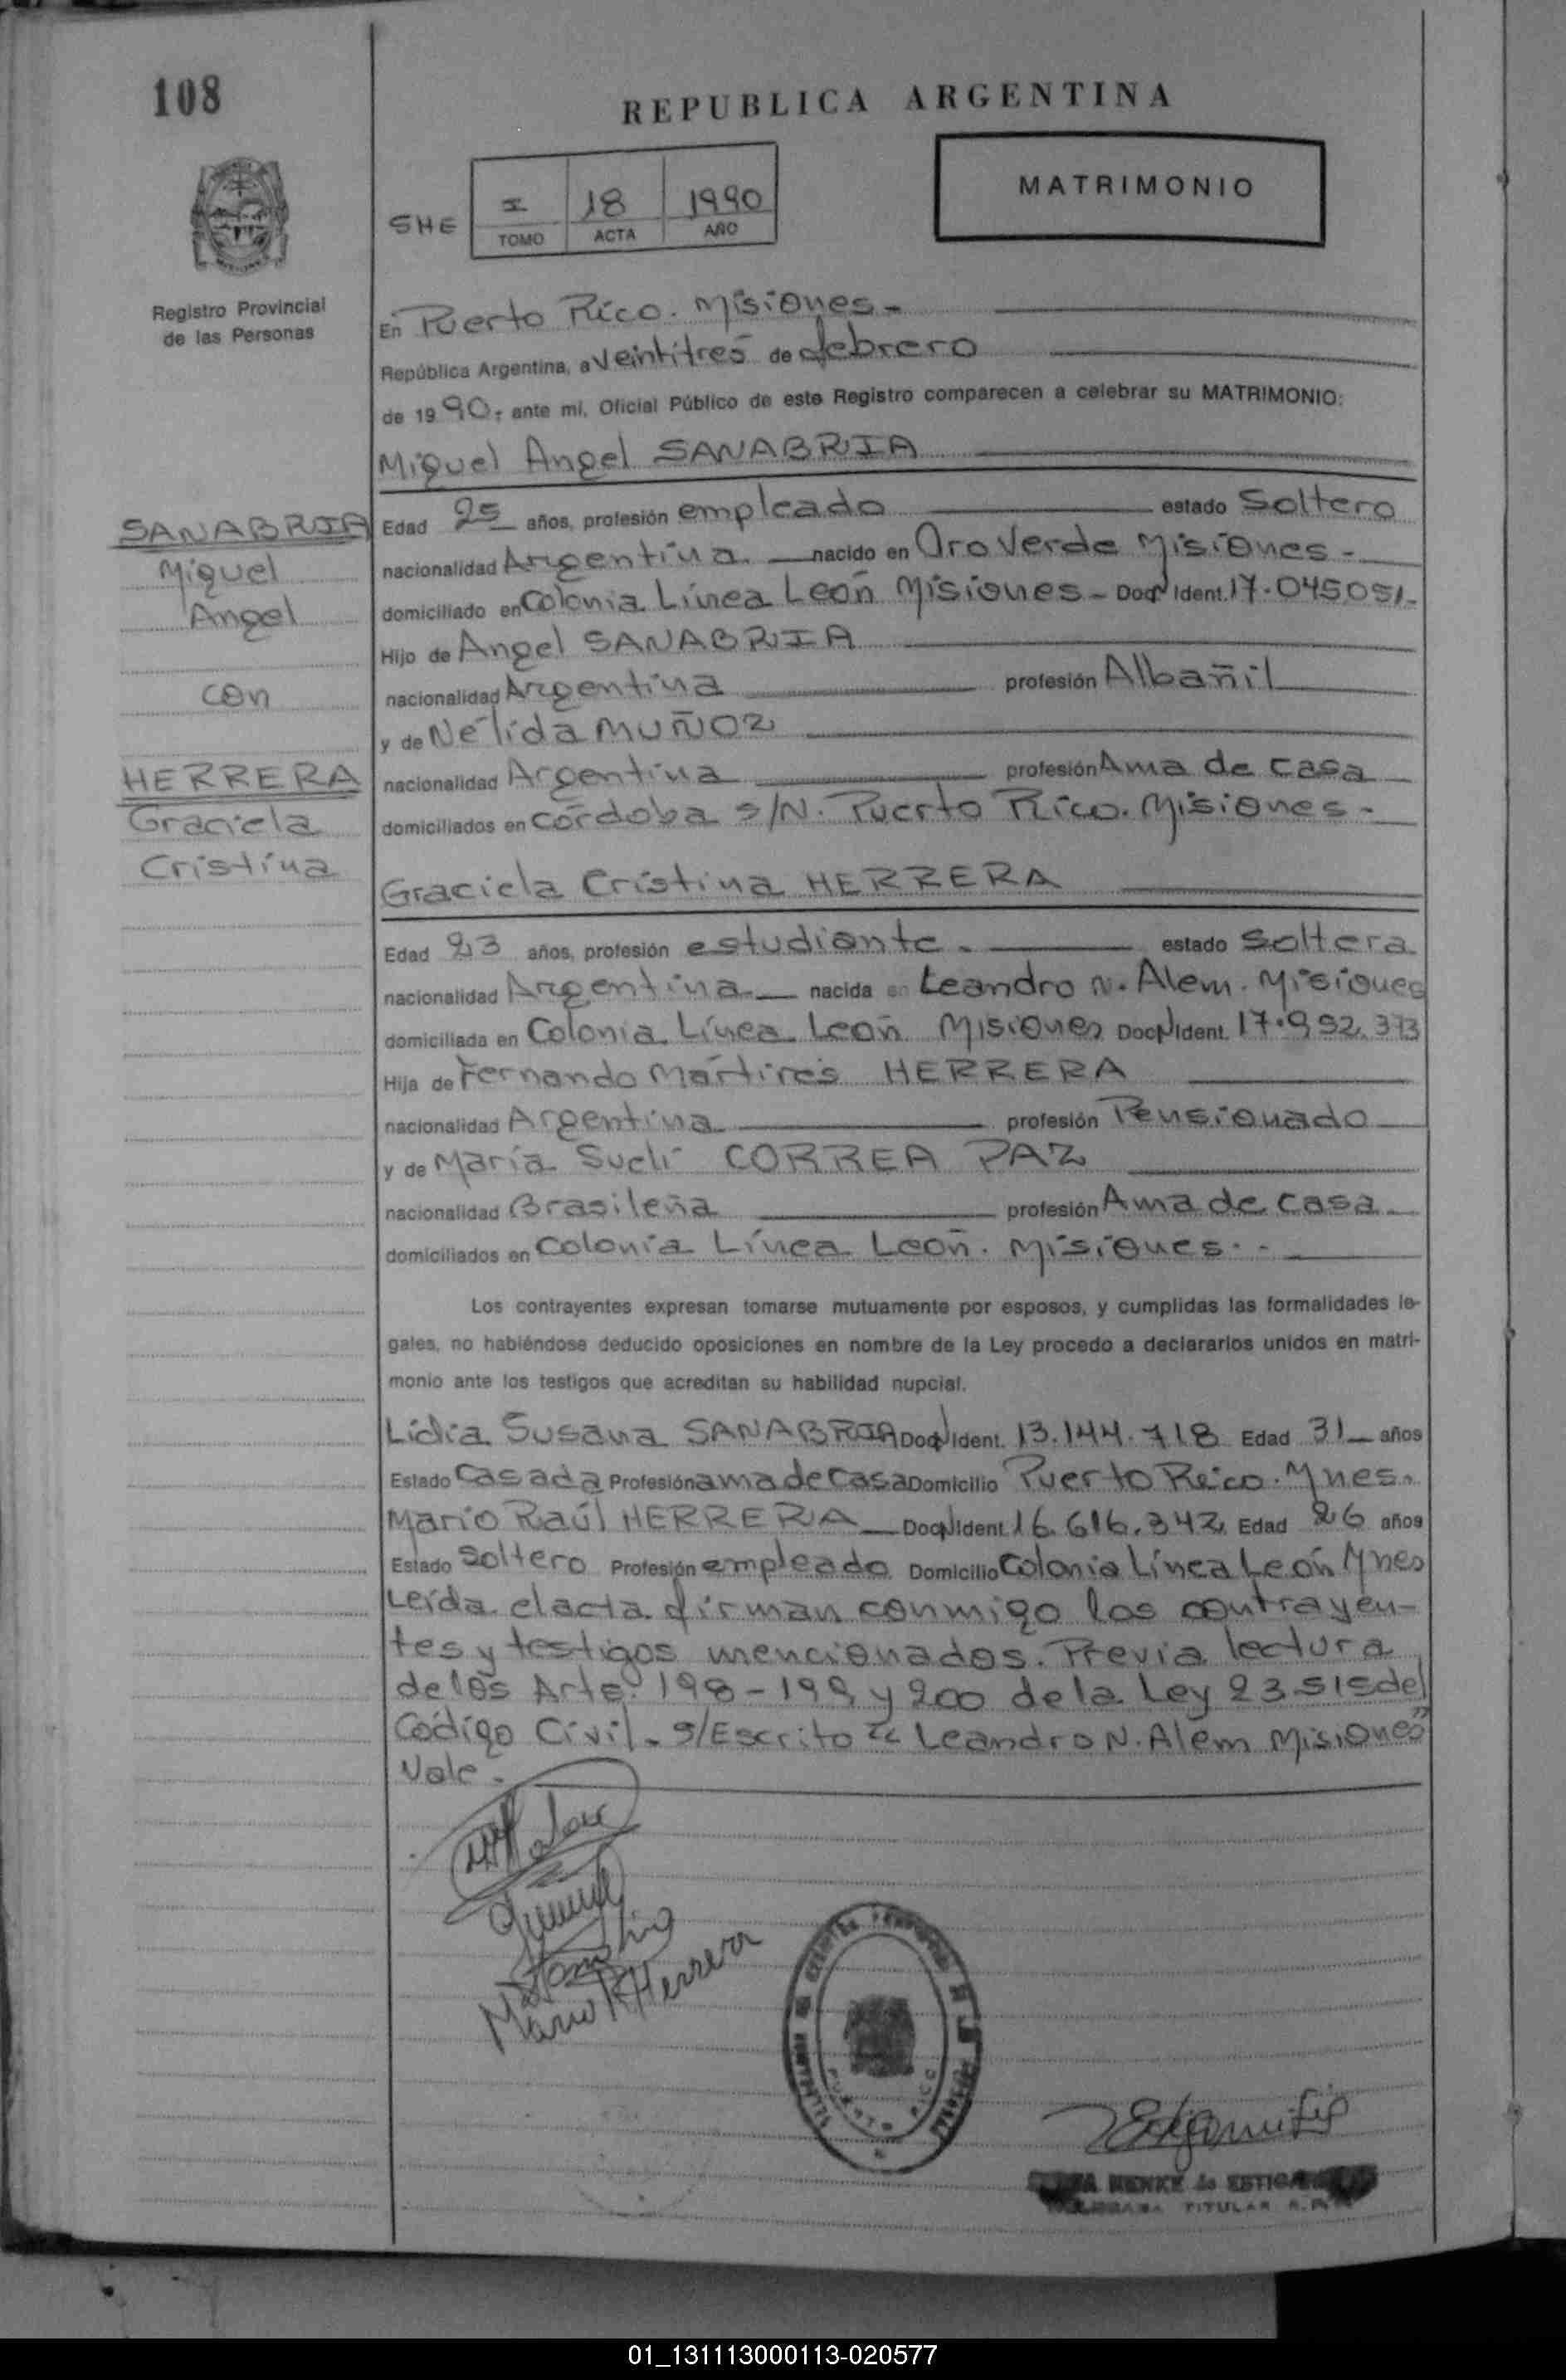 108
REPUBLICA ARGENTINA
MATRIMONIO
SHE
I 18 1990
TOMO ACTA AÑO
Registro Provincial
de las Personas
En Puerto Rico. Misiones-
República Argentina, a veintitrés de febrero
de 1990- ante mí, Oficial Público de este Registro comparecen a celebrar su MATRIMONIO:
Miguel Angel SANABRIA
SANABRIA
Miguel
Angel
con
HERRERA
Graciela
Cristina
Edad 25 años, profesión empleado estado Soltero
nacionalidad Argentina. nacido en Oro Verde Misiones-
domiciliado en Colonia Línea León Misiones- Doc N Ident. 17.045.051.-
Hijo de Angel SANABRIA
nacionalidad Argentina profesión Albañil
y de Nélida MUÑOZ
nacionalidad Argentina profesión Ama de casa
domiciliados en Córdoba S/N. Puerto Rico. Misiones-
Graciela Cristina HERRERA
Edad 23 años, profesión estudiante. estado Soltera
nacionalidad Argentina nacida en Leandro N. Alem. Misiones
domiciliada en Colonia Línea León Misiones Doc N Ident. 17.992.373
Hija de Fernando Mártires HERRERA
nacionalidad Argentina profesión Pensionado
y de María Sueli CORREA PAZ
nacionalidad Brasileña profesión Ama de casa
domiciliados en Colonia Línea León. Misiones.-
Los contrayentes expresan tomarse mutuamente por esposos, y cumplidas las formalidades le-
gales, no habiéndose deducido oposiciones en nombre de la Ley procedo a declararlos unidos en matri-
monio ante los testigos que acreditan su habilidad nupcial.
Lidia Susana SANABRIA Doc N Ident. 13.144.718 Edad 31 años
Estado Casada Profesión ama de casa Domicilio Puerto Rico. Mnes.
Mario Raúl HERRERA Doc N Ident. 16.616.342 Edad 26 años
Estado Soltero Profesión empleado Domicilio Colonia Línea León Mnes
Leída el acta firman conmigo los contrayen-
tes y testigos mencionados. Previa lectura
de los Arts. 198-199 y 200 de la Ley 23.515 del
Código Civil. S/Escrito "Leandro N. Alem Misiones"
Vale.
Mario R Herrera
PUERTO RICO
MENKE de
TITULAR
01_131113000113-020577